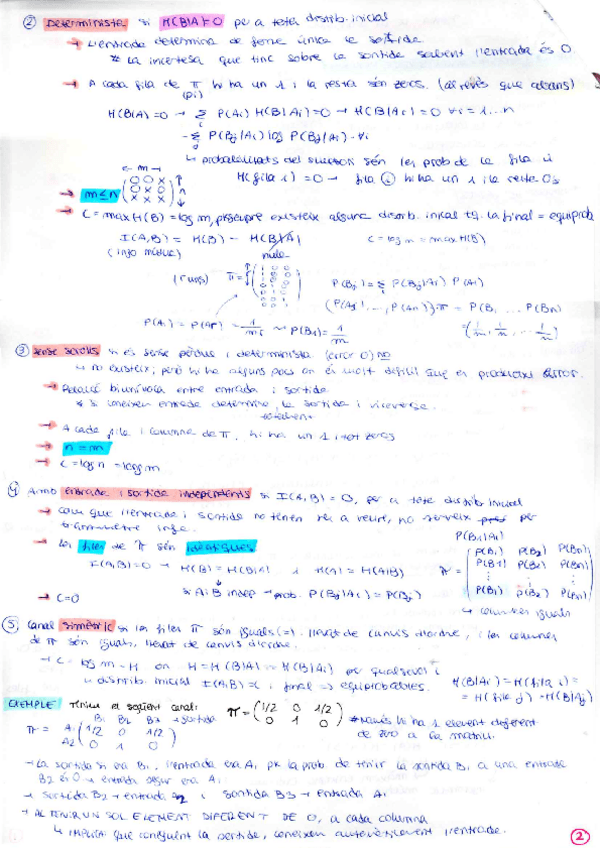 ② Determinista si H(B|A)=0 per a tota distrib. inicial
→ L'entrada determina de forma única la sortida
* La incertesa que tinc sobre la sortida sabent l'entrada és 0
→ A cada fila de π hi ha un 1 i la resta són zeros. (al revés que abans)
H(B|A)=0 → Σ P(Ai) H(B|Ai)=0 → H(B|Ai)=0 ∀i=1...n
-Σ P(Bj|Ai) log P(Bj|Ai) ∀i
↳ probabilitats del són les prob de la fila i
H(fila i)=0 → fila i hi ha un 1 i la resta 0s
→ m≤n
→ C=max H(B)=log m, perquè existeix alguna distrib. inicial tq. la final = equiprob
I(A,B) = H(B) - H(B|A)
C=log m = max H(B)
(info mútua)
nul·la
π=
P(Bj)=Σ P(Bj|Ai) P(Ai)
(P(A1), ..., P(An))·π = P(B1 ... P(Bm)
P(B1)=1/m
(1/m, 1/m, ... 1/m)
③ Sense sorolls si és sense pèrdues i determinista (error 0) no
↳ no existeix, però hi ha alguns pocs on és molt difícil que es produeixi error.
→ Relació biunívoca entre entrada i sortida
* Si coneixem entrada determina la sortida i viceversa.
→ A cada fila i columna de π, hi ha un 1 i tot zeros
→ n=m
→ C=log n = log m
④ Amb entrada i sortida independents si I(A,B)=0, per a tota distrib inicial
→ Com que l'entrada i sortida no tenen res a veure, no serveix per
transmetre info.
P(Bj|Ai)
→ Les files de π són idèntiques
I(A,B)=0 → H(B)=H(B|A) i H(A)=H(A|B)
π = P(B1) P(B2) P(Bn)
P(B1) P(B2) P(Bn)
P(B1) P(B2) P(Bn)
* A i B indep → prob. P(Bj|Ai)=P(Bj)
↳ columnes iguals
→ C=0
⑤ Canal simètric si les files π són iguals (=) llevat de canvis d'ordre, i les columnes
de π són iguals, llevat de canvis d'ordre.
→ C = log m - H on H=H(B|A)=H(B|Ai) per qualsevol i
→ distrib. inicial I(A,B)=C i final => equiprobables.
H(B|Ai)=H(fila i)=
=H(fila j)=H(B|Aj)
EXEMPLE Tenim el següent canal: π=(1/2 0 1/2
0 1 0)
B1 B2 B3 → sortida
π = A1 (1/2 0 1/2
A2 0 1 0)
*Només hi ha 1 element diferent
de zero a la matriu.
→ La sortida si era B1, l'entrada era A1 pq la prob de tenir la sortida B1 a una entrada
B2 és 0 → entrada segur era A1
→ sortida B2 → entrada A2 i sortida B3 → entrada A1
→ AL TENIR UN SOL ELEMENT DIFERENT DE 0, a cada columna
↳ IMPLICA que coneguent la sortida, coneixem automàticament l'entrada.
②